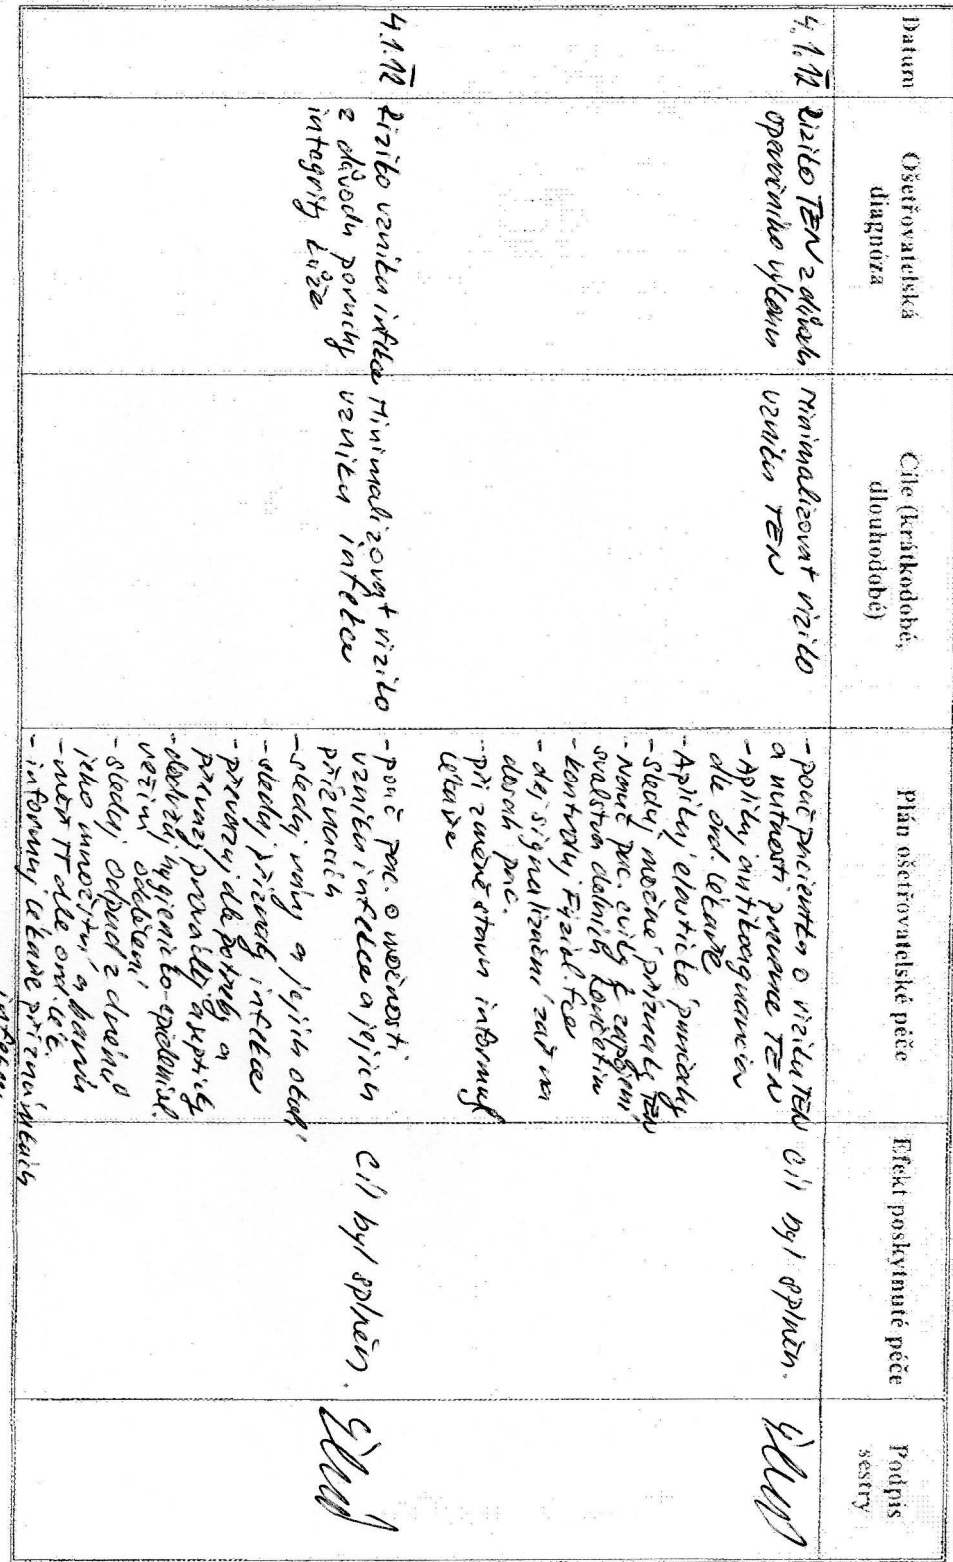 Datum
Ošetřovatelská
diagnóza
Cíle (krátkodobé,
dlouhodobé)
Plán ošetřovatelské péče
Efekt poskytnuté péče
Podpis
sestry
4.1.12
Riziko TEN z důvodu
operačního výkonu
Minimalizovat riziko
vzniku TEN
- pouč pacienta o riziku TEN
a nutnosti prevence TEN
- Aplikuj antikoagulancia
dle ord. lékaře
- Aplikuj elastické punčochy
- Sleduj možné příznaky TEN
- Nauč pac. cviky k zapojení
svalstva dolních končetin
- kontroluj Fyziol. fce
- dej signalizační zař. na
dosah pac.
- při změně stavu informuj
lékaře
Cíl byl splněn.
4.1.12
Riziko vzniku infekce
z důvodu poruchy
integrity kůže
Minimalizovat riziko
vzniku infekce
- pouč pac. o možnosti
vzniku infekce a jejích
příznacích
- sleduj rány a jejich okolí
- sleduj příznaky infekce
- převazuj dle potřeby a
převazy prováděj asepticky
- dodržuj hygienicko-epidemiol.
režim oddělení
- sleduj odpad z drénů
jeho množství a barvu
- měř TT dle ord. lék.
- informuj lékaře při známkách
infekce
Cíl byl splněn.